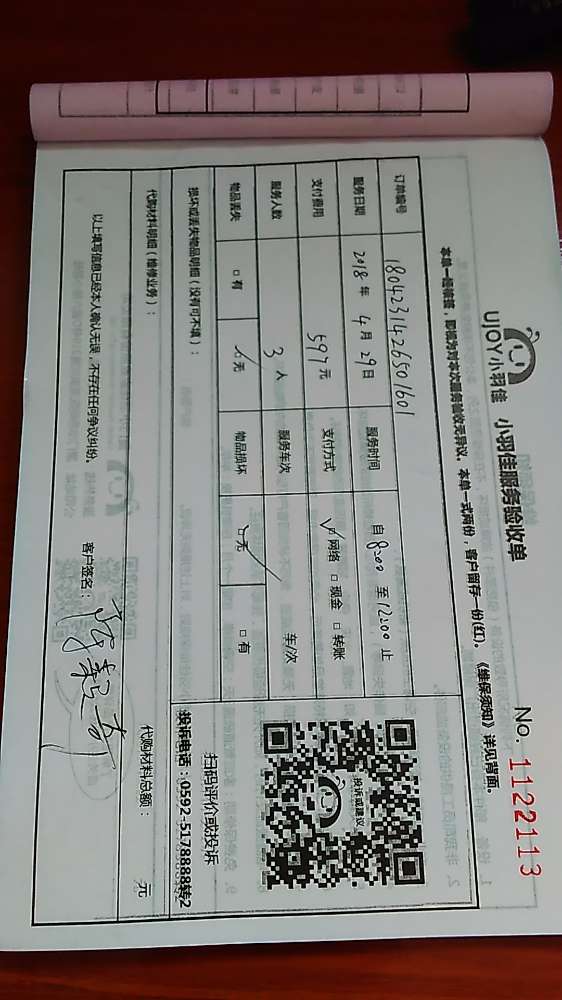 UJOY小羽佳 小羽佳服务验收单 No. 1122113
本单一经保洁，即视为对本次服务验收无异议。本单一式两份，客户留存一份(红)。《维保须知》详见背面。
订单编号 180423142650160
服务日期 2018年 4月 29日 服务时间 自 8:00 至 12:00 止
支付费用 597元 支付方式 ☑网络 □现金 □转账
服务人数 3人 服务车次 车/次
物品丢失 □有 ☑无 物品损坏 ☑无 □有
损坏或丢失物品明细（没有可不填）：
投诉或建议
扫码评价或投诉
投诉电话：0592-5178888转2
代购材料明细（维修业务）： 代购材料总额： 元
以上填写信息已经本人确认无误，不存在任何争议纠纷。 客户签名：